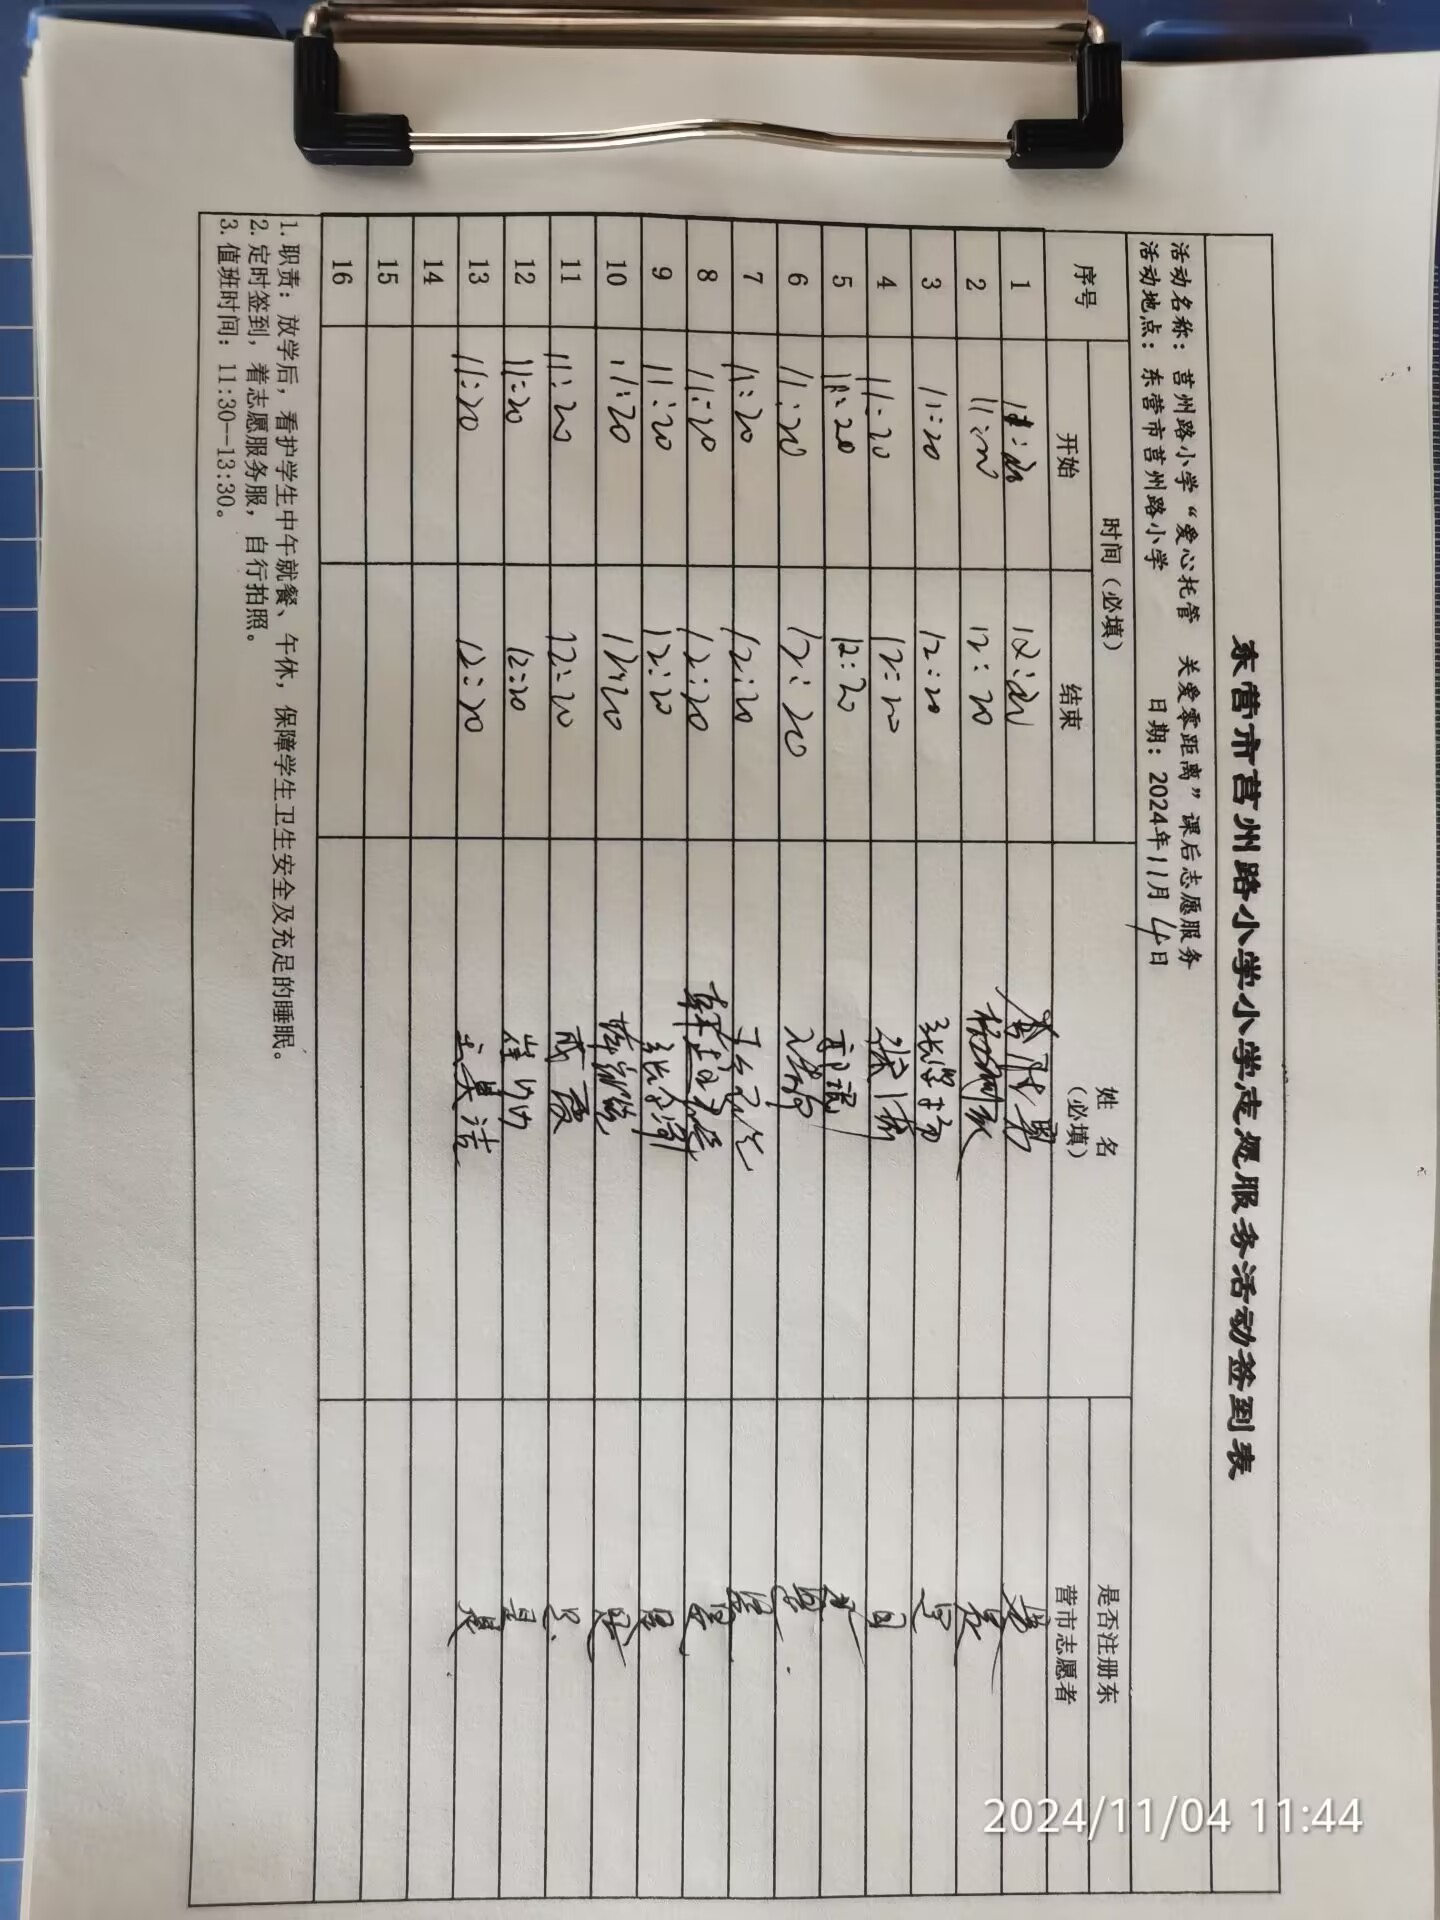 东营市莒州路小学小学志愿服务活动签到表
活动名称：莒州路小学“爱心托管 关爱零距离”课后志愿服务
活动地点：东营市莒州路小学 日期：2024年11月4日
序号 时间（必填） 姓 名（必填） 是否注册东营市志愿者
开始 结束
1 12:20
2 11:20 12:20 是
3 11:20 12:20 是
4 11:20 12:20 是
5 11:20 12:20 郭珉
6 11:20 12:20 是
7 11:20 12:20 是
8 11:20 12:20 是
9 11:20 12:20 是
10 11:20 12:20 是
11 11:20 12:20 成霞 是
12 11:20 12:20 是
13 11:20 12:20 王昊洁 是
14
15
16
1. 职责：放学后，看护学生中午就餐、午休，保障学生卫生安全及充足的睡眠。
2. 定时签到，着志愿服务服，自行拍照。
3. 值班时间：11:30—13:30。
2024/11/04 11:44